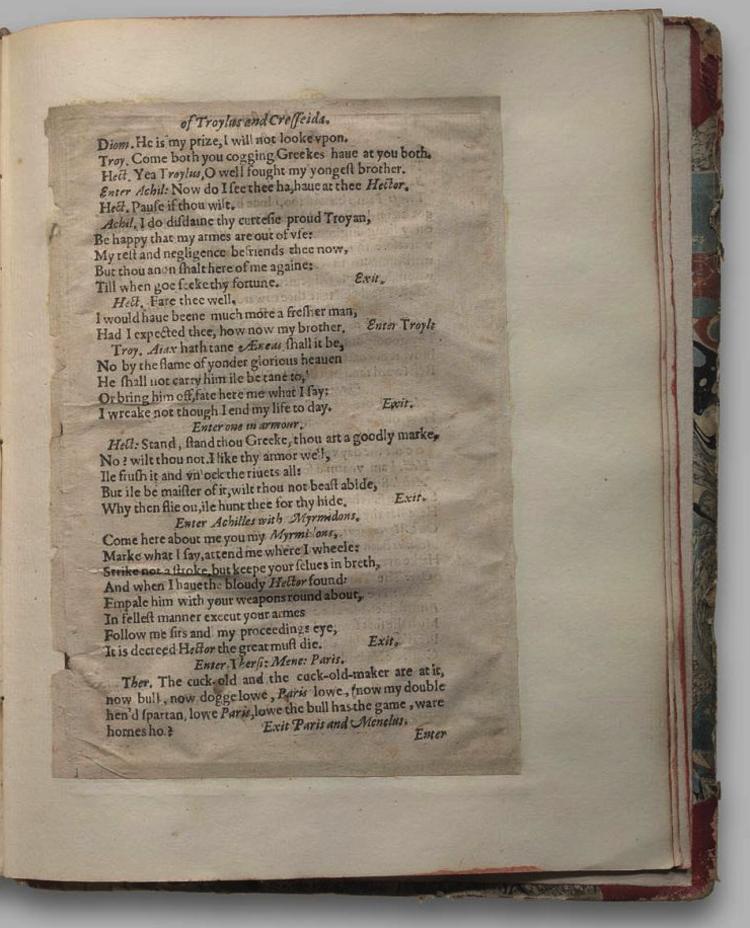 of Troylus and Cresseida.
Diom. He is my prize, I will not looke vpon.
Troy. Come both you cogging Greekes haue at you both.
Hect. Yea Troylus, O well fought my yongest brother.
Enter Achil: Now do I see thee ha, haue at thee Hector.
Hect. Pause if thou wilt.
Achil. I do disdaine thy curtesie proud Troyan,
Be happy that my armes are out of vse:
My rest and negligence befriends thee now,
But thou anon shalt here of me againe:
Till when goe seeke thy fortune. Exit.
Hect. Fare thee well,
I would haue beene much more a fresher man,
Had I expected thee, how now my brother. Enter Troyle
Troy. Aiax hath tane Æneas shall it be,
No by the flame of yonder glorious heauen
He shall not carry him ile be tane to,
Or bring him off, fate here me what I say:
I wreake not though I end my life to day. Exit.
Enter one in armour.
Hect: Stand, stand thou Greeke, thou art a goodly marke,
No? wilt thou not. I like thy armor well,
Ile frush it and vnlock the riuets all:
But ile be maister of it, wilt thou not beast abide,
Why then flie on, ile hunt thee for thy hide. Exit.
Enter Achilles with Myrmidons.
Come here about me you my Myrmidons,
Marke what I say, attend me where I wheele:
Strike not a stroke, but keepe your selues in breth,
And when I haue the bloudy Hector found:
Empale him with your weapons round about,
In fellest manner execut your armes
Follow me sirs and my proceedings eye,
It is decreed Hector the great must die. Exit.
Enter Thersi: Mene: Paris.
Ther. The cuck-old and the cuck-old-maker are at it,
now bull, now dogge lowe, Paris lowe, now my double
hen'd spartan, lowe Paris, lowe the bull has the game, ware
hornes ho? Exit Paris and Menelus.
Enter